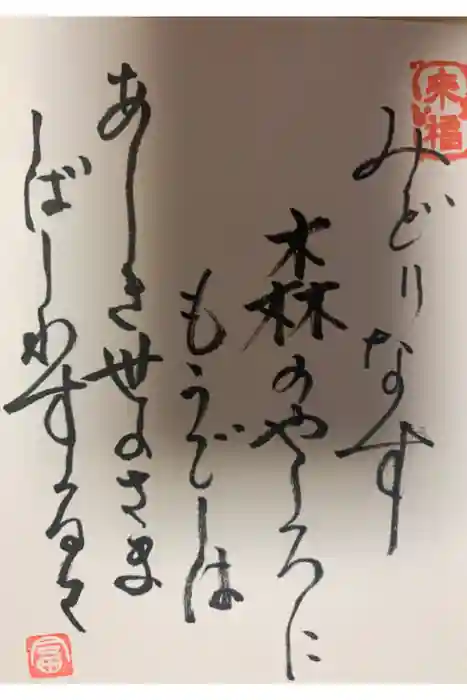 来福
みどりなす
森のやしろに
もうでしは
あしき世のさま
しばしわするる
冨